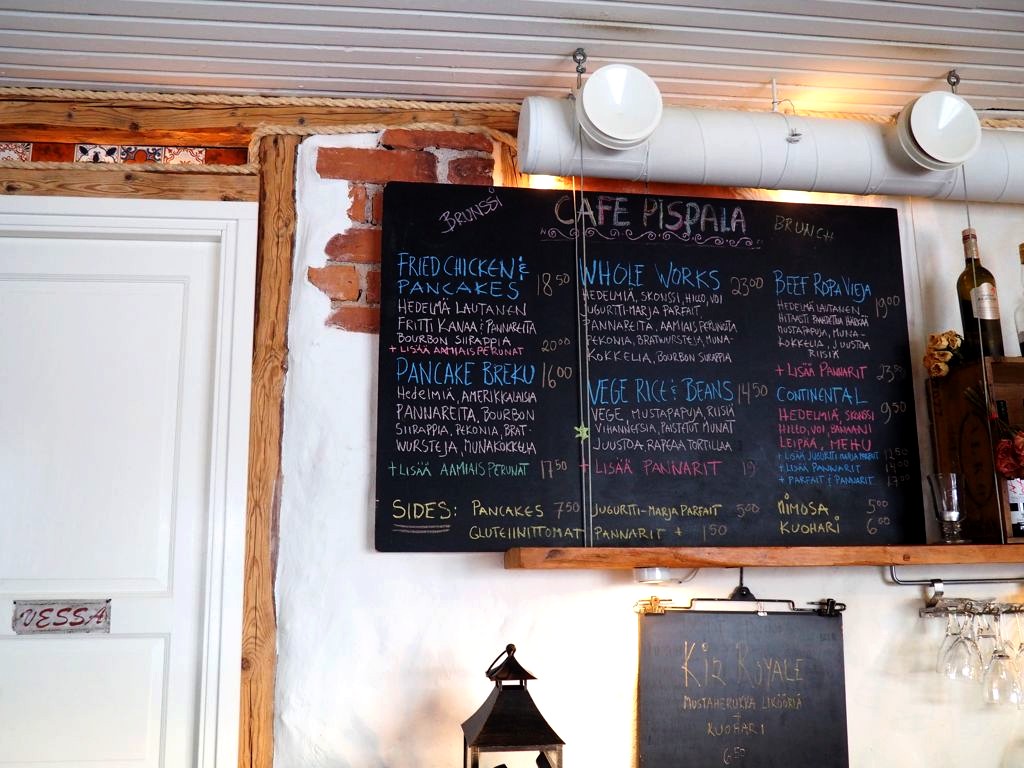 BRUNSSI
CAFE PISPALA
BRUNCH
FRIED CHICKEN &
PANCAKES 18 50
HEDELMÄ LAUTANEN
FRITTI KANAA & PANNAREITA
BOURBON SIIRAPPIA
+ LISÄÄ AAMIAISPERUNAT 20 00
PANCAKE BREKU 16 00
HEDELMIÄ, AMERIKKALAISIA
PANNAREITA, BOURBON
SIIRAPPIA, PEKONIA, BRAT-
WURSTEJA, MUNAKOKKELIA
+ LISÄÄ AAMIAISPERUNAT 17 50
WHOLE WORKS 23 00
HEDELMIÄ, SKONSSI, HILLO, VOI
JUGURTTI-MARJA PARFAIT
PANNAREITA, AAMIAISPERUNOITA
PEKONIA, BRATWURSTEJA, MUNA-
KOKKELIA, BOURBON SIIRAPPIA
VEGE RICE & BEANS 14 50
VEGE, MUSTAPAPUJA, RIISIÄ
VIHANNEKSIA, PAISTETUT MUNAT
JUUSTOA, RAPEAA TORTILLAA
+ LISÄÄ PANNARIT 19
BEEF ROPA VIEJA 19 00
HEDELMÄ LAUTANEN...
HITAASTI HAUDUTETTUA HÄRKÄÄ
MUSTAPAPUJA, MUNA-
KOKKELIA, JUUSTOA
RIISIÄ
+ LISÄÄ PANNARIT 23 50
CONTINENTAL 9 50
HEDELMIÄ, SKONSSI
HILLO, VOI, BANAANI
LEIPÄÄ, MEHU
+ LISÄÄ JUGURTTI MARJA PARFAIT 12 50
+ LISÄÄ PANNARIT
+ PARFAIT & PANNARIT
SIDES: PANCAKES 7 50 JUGURTTI-MARJA PARFAIT 5 00
GLUTEIINITTOMAT PANNARIT + 1 50
MIMOSA 5 00
KUOHARI 6 00
VESSA
KIR ROYALE
MUSTAHERUKKA LIKÖÖRIÄ
+
KUOHARI
6 50